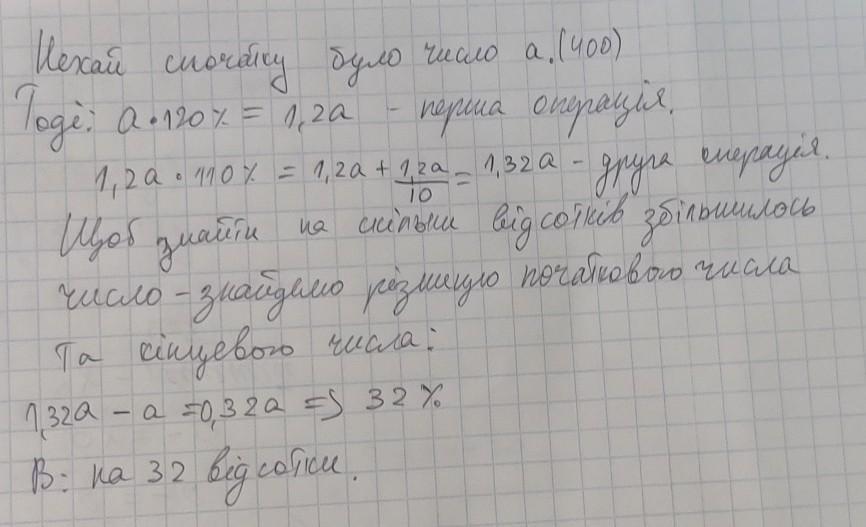 Нехай спочатку було число a. (400)
Тоді: a • 120% = 1,2a - перша операція.
1,2a • 110% = 1,2a + 1,2a/10 = 1,32a - друга операція.
Щоб знайти на скільки відсотків збільшилось
число - знайдемо різницю початкового числа
та кінцевого числа:
1,32a - a = 0,32a => 32%
В: на 32 відсотки.